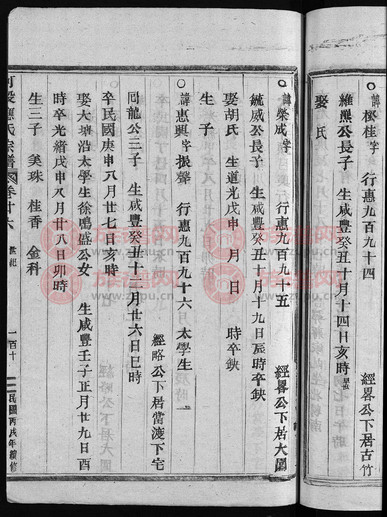 諱松桂字 行惠九百九十四 經畧公下居古竹
維熊公長子 生咸豐癸丑十月十四日亥時
娶 氏
諱榮成字 行惠九百九十五 經畧公下居大園
毓威公長子 生咸豐癸丑十月十九日辰時卒缺
娶胡氏 生道光戊申 月 日 時卒缺
生 子
諱惠興字振聲 行惠九百九十六月太學生 經略公下居當淩下宅
同龍公三子 生咸豐癸丑十二月廿六日巳時
卒民國庚申八月廿七日亥時
娶大塘沿太學生徐鳴盛公女 生咸豐壬子正月廿九日酉
時卒光緒戊申八月廿八日卯時
生三子 美珠 桂香 金科
氏宗譜 卷廿六 世紀 一百十 民國丙戌年續修
族譜网
www.zupu.cn